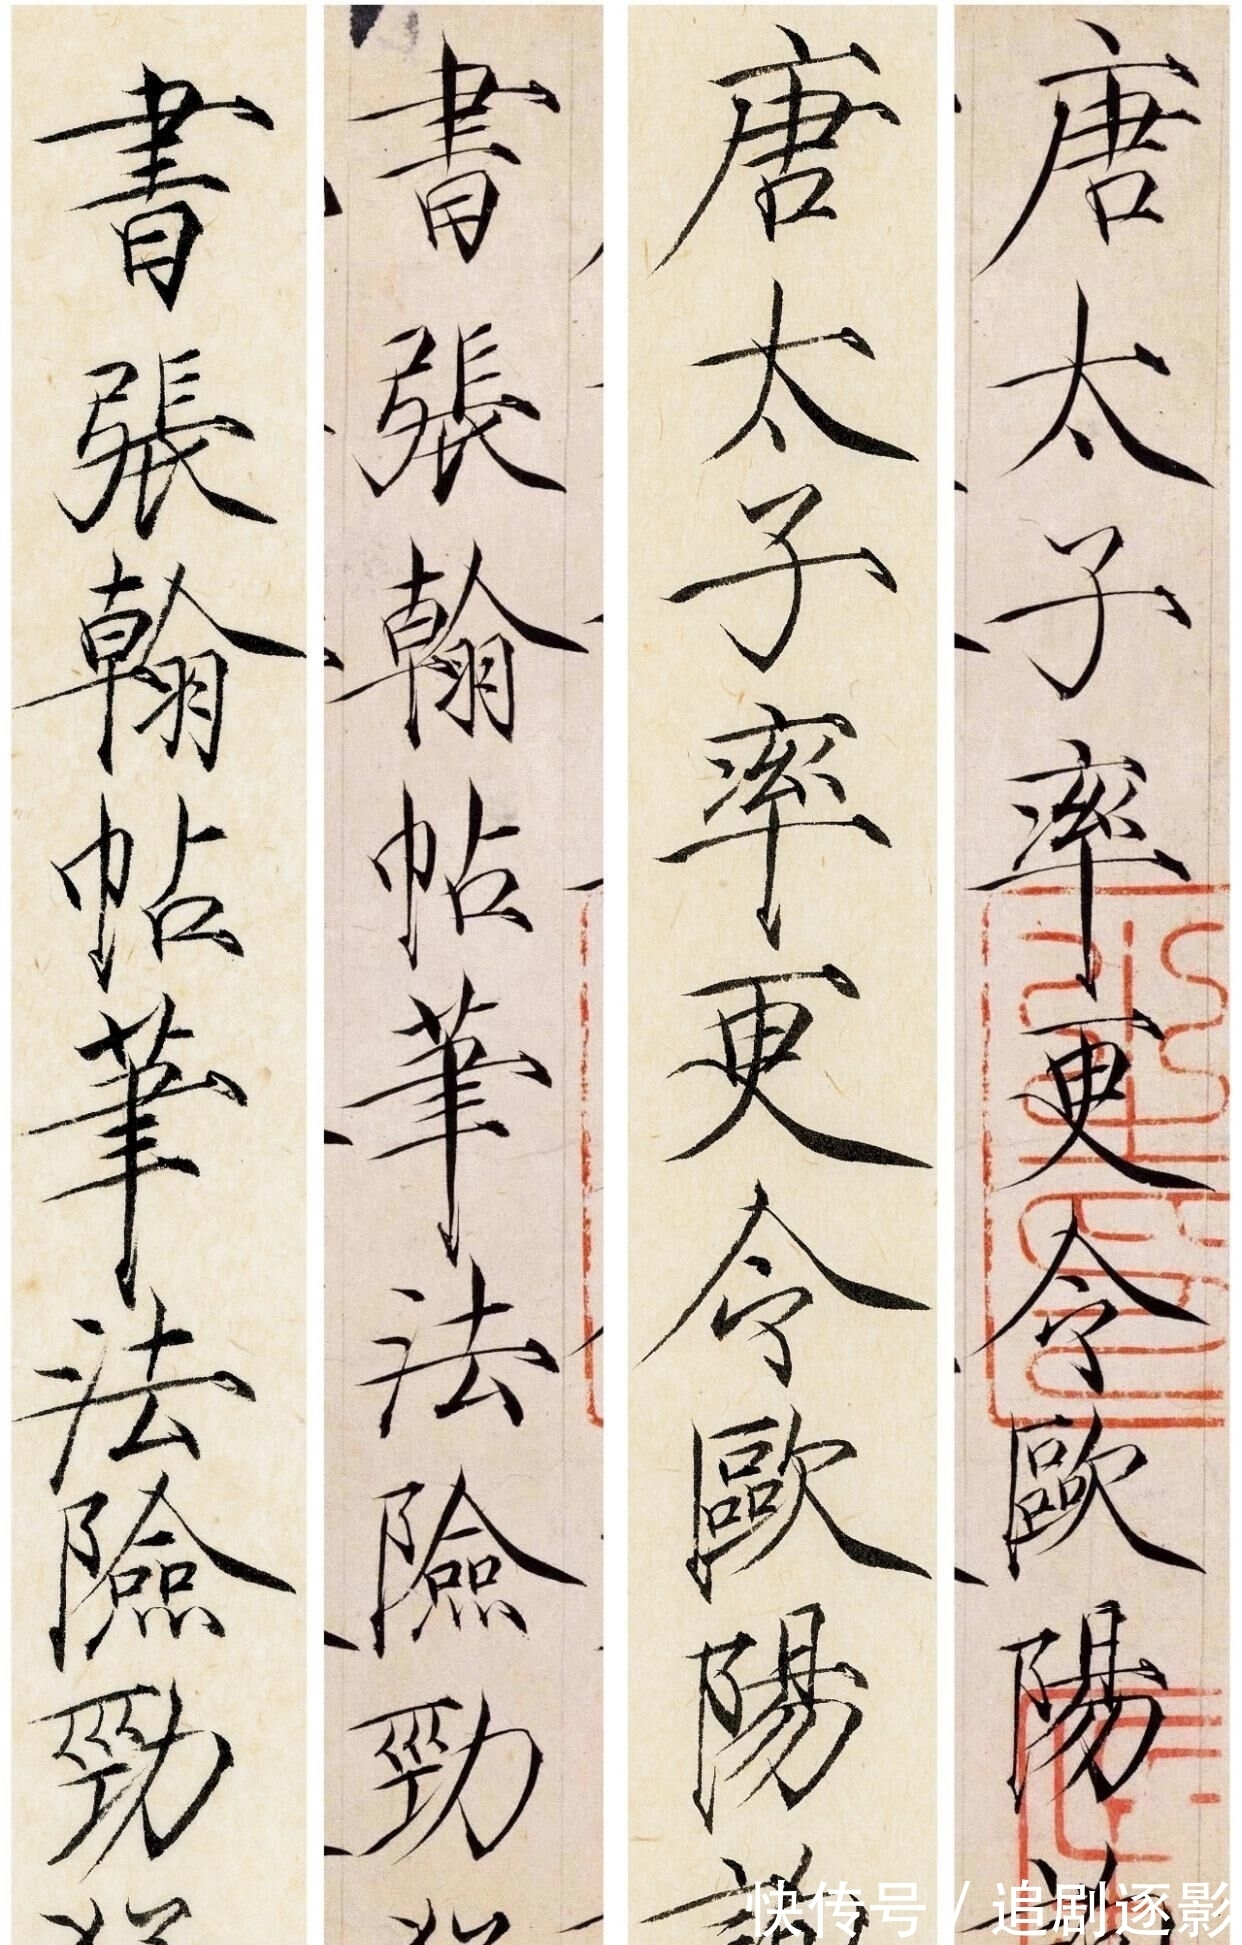 唐太子率更令歐陽
唐太子率更令歐陽
書張翰帖筆法險勁
書張翰帖筆法險勁
快传号 / 追剧逐影